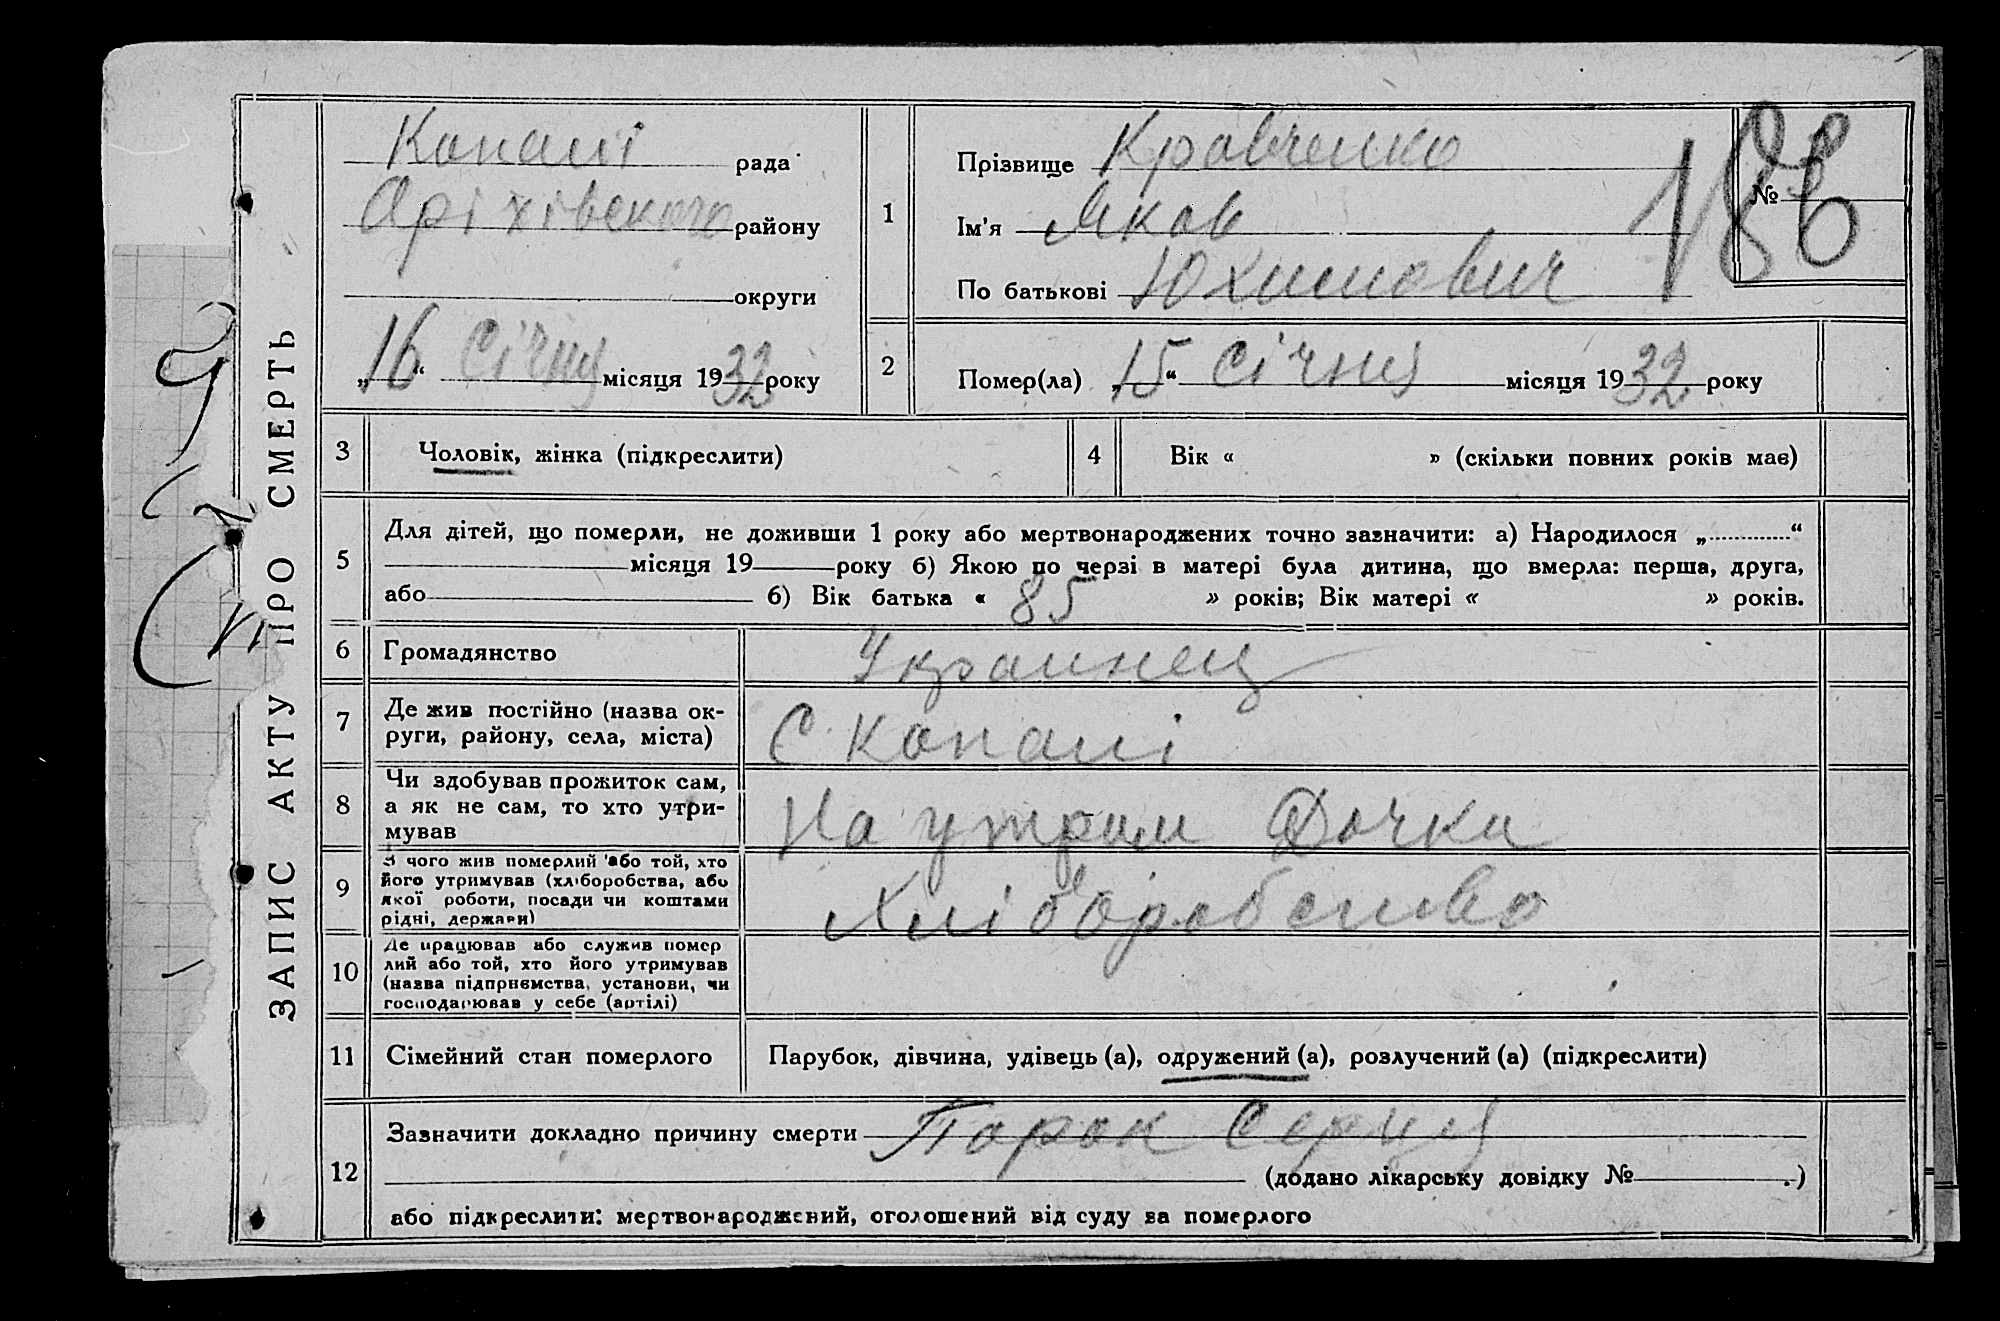 ЗАПИС АКТУ ПРО СМЕРТЬ
Копані рада
Оріхівського району
округи
„16“ Січня місяця 1932 року
1
Прізвище Кравченко
Ім'я Яков
По батькові Юхимович
№ 188
2
Помер(ла) „15“ Січня місяця 1932 року
3 Чоловік, жінка (підкреслити)
4 Вік « » (скільки повних років має)
5
Для дітей, що померли, не доживши 1 року або мертвонароджених точно зазначити: а) Народилося „ “
місяця 19 року б) Якою по черзі в матері була дитина, що вмерла: перша, друга,
або б) Вік батька « 85 » років; Вік матері « » років.
6 Громадянство Украинец
7 Де жив постійно (назва ок-
руги, району, села, міста)
С. Копані
8 Чи здобував прожиток сам,
а як не сам, то хто утри-
мував
На утрим Дочки
9 З чого жив померлий або той, хто
його утримував (хліборобства, або
якої роботи, посади чи коштами
рідні, держави)
Хліборобство
10 Де працював або служив помер
лий або той, хто його утримував
(назва підприємства, установи, чи
господарював у себе (артілі)
11 Сімейний стан померлого
Парубок, дівчина, удівець (а), одружений (а), розлучений (а) (підкреслити)
12
Зазначити докладно причину смерти Порок Серця
(додано лікарську довідку № .)
або підкреслити: мертвонароджений, оголошений від суду за померлого